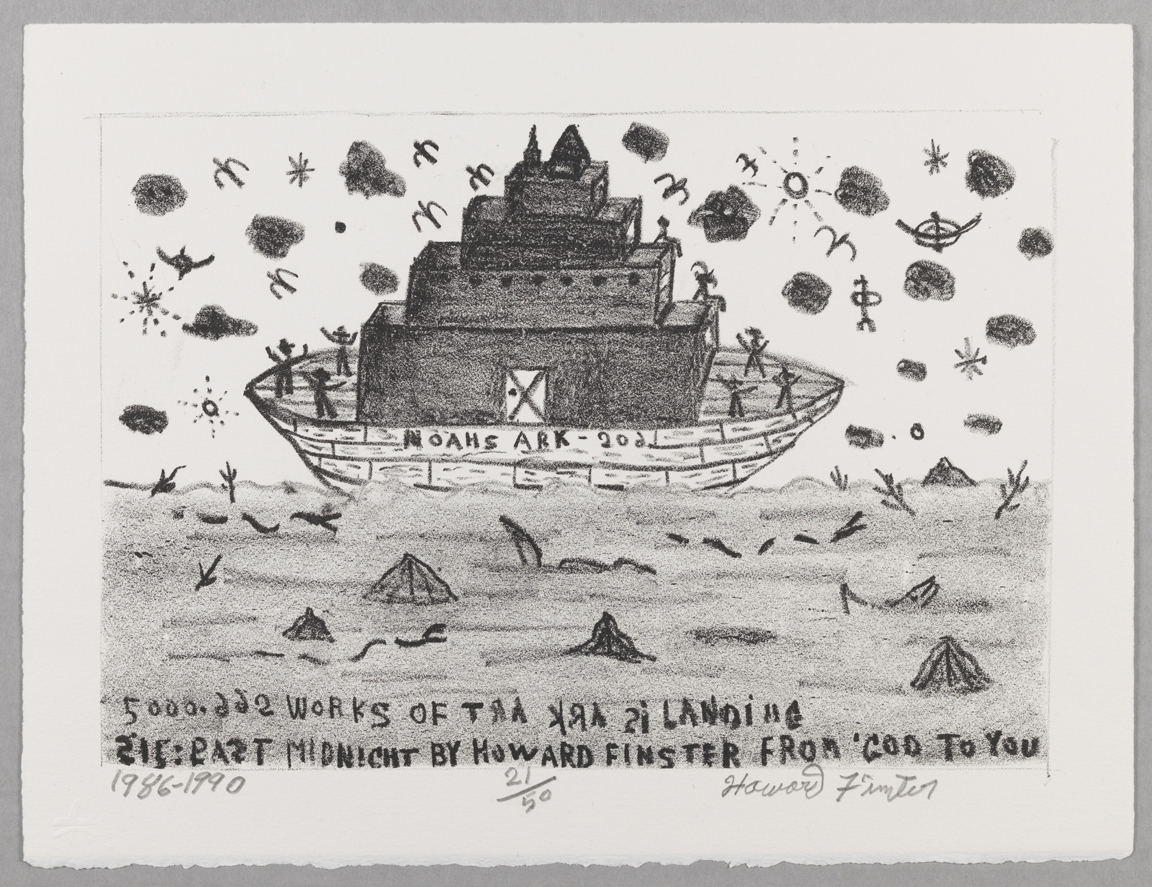 NOAHS ARK -
WORKS OF ART ARK iS LANDiNG
PAST MIDNIGHT BY HOWARD FINSTER FROM 'GOD TO YOU
1986-1990 21/50 Howard Finster